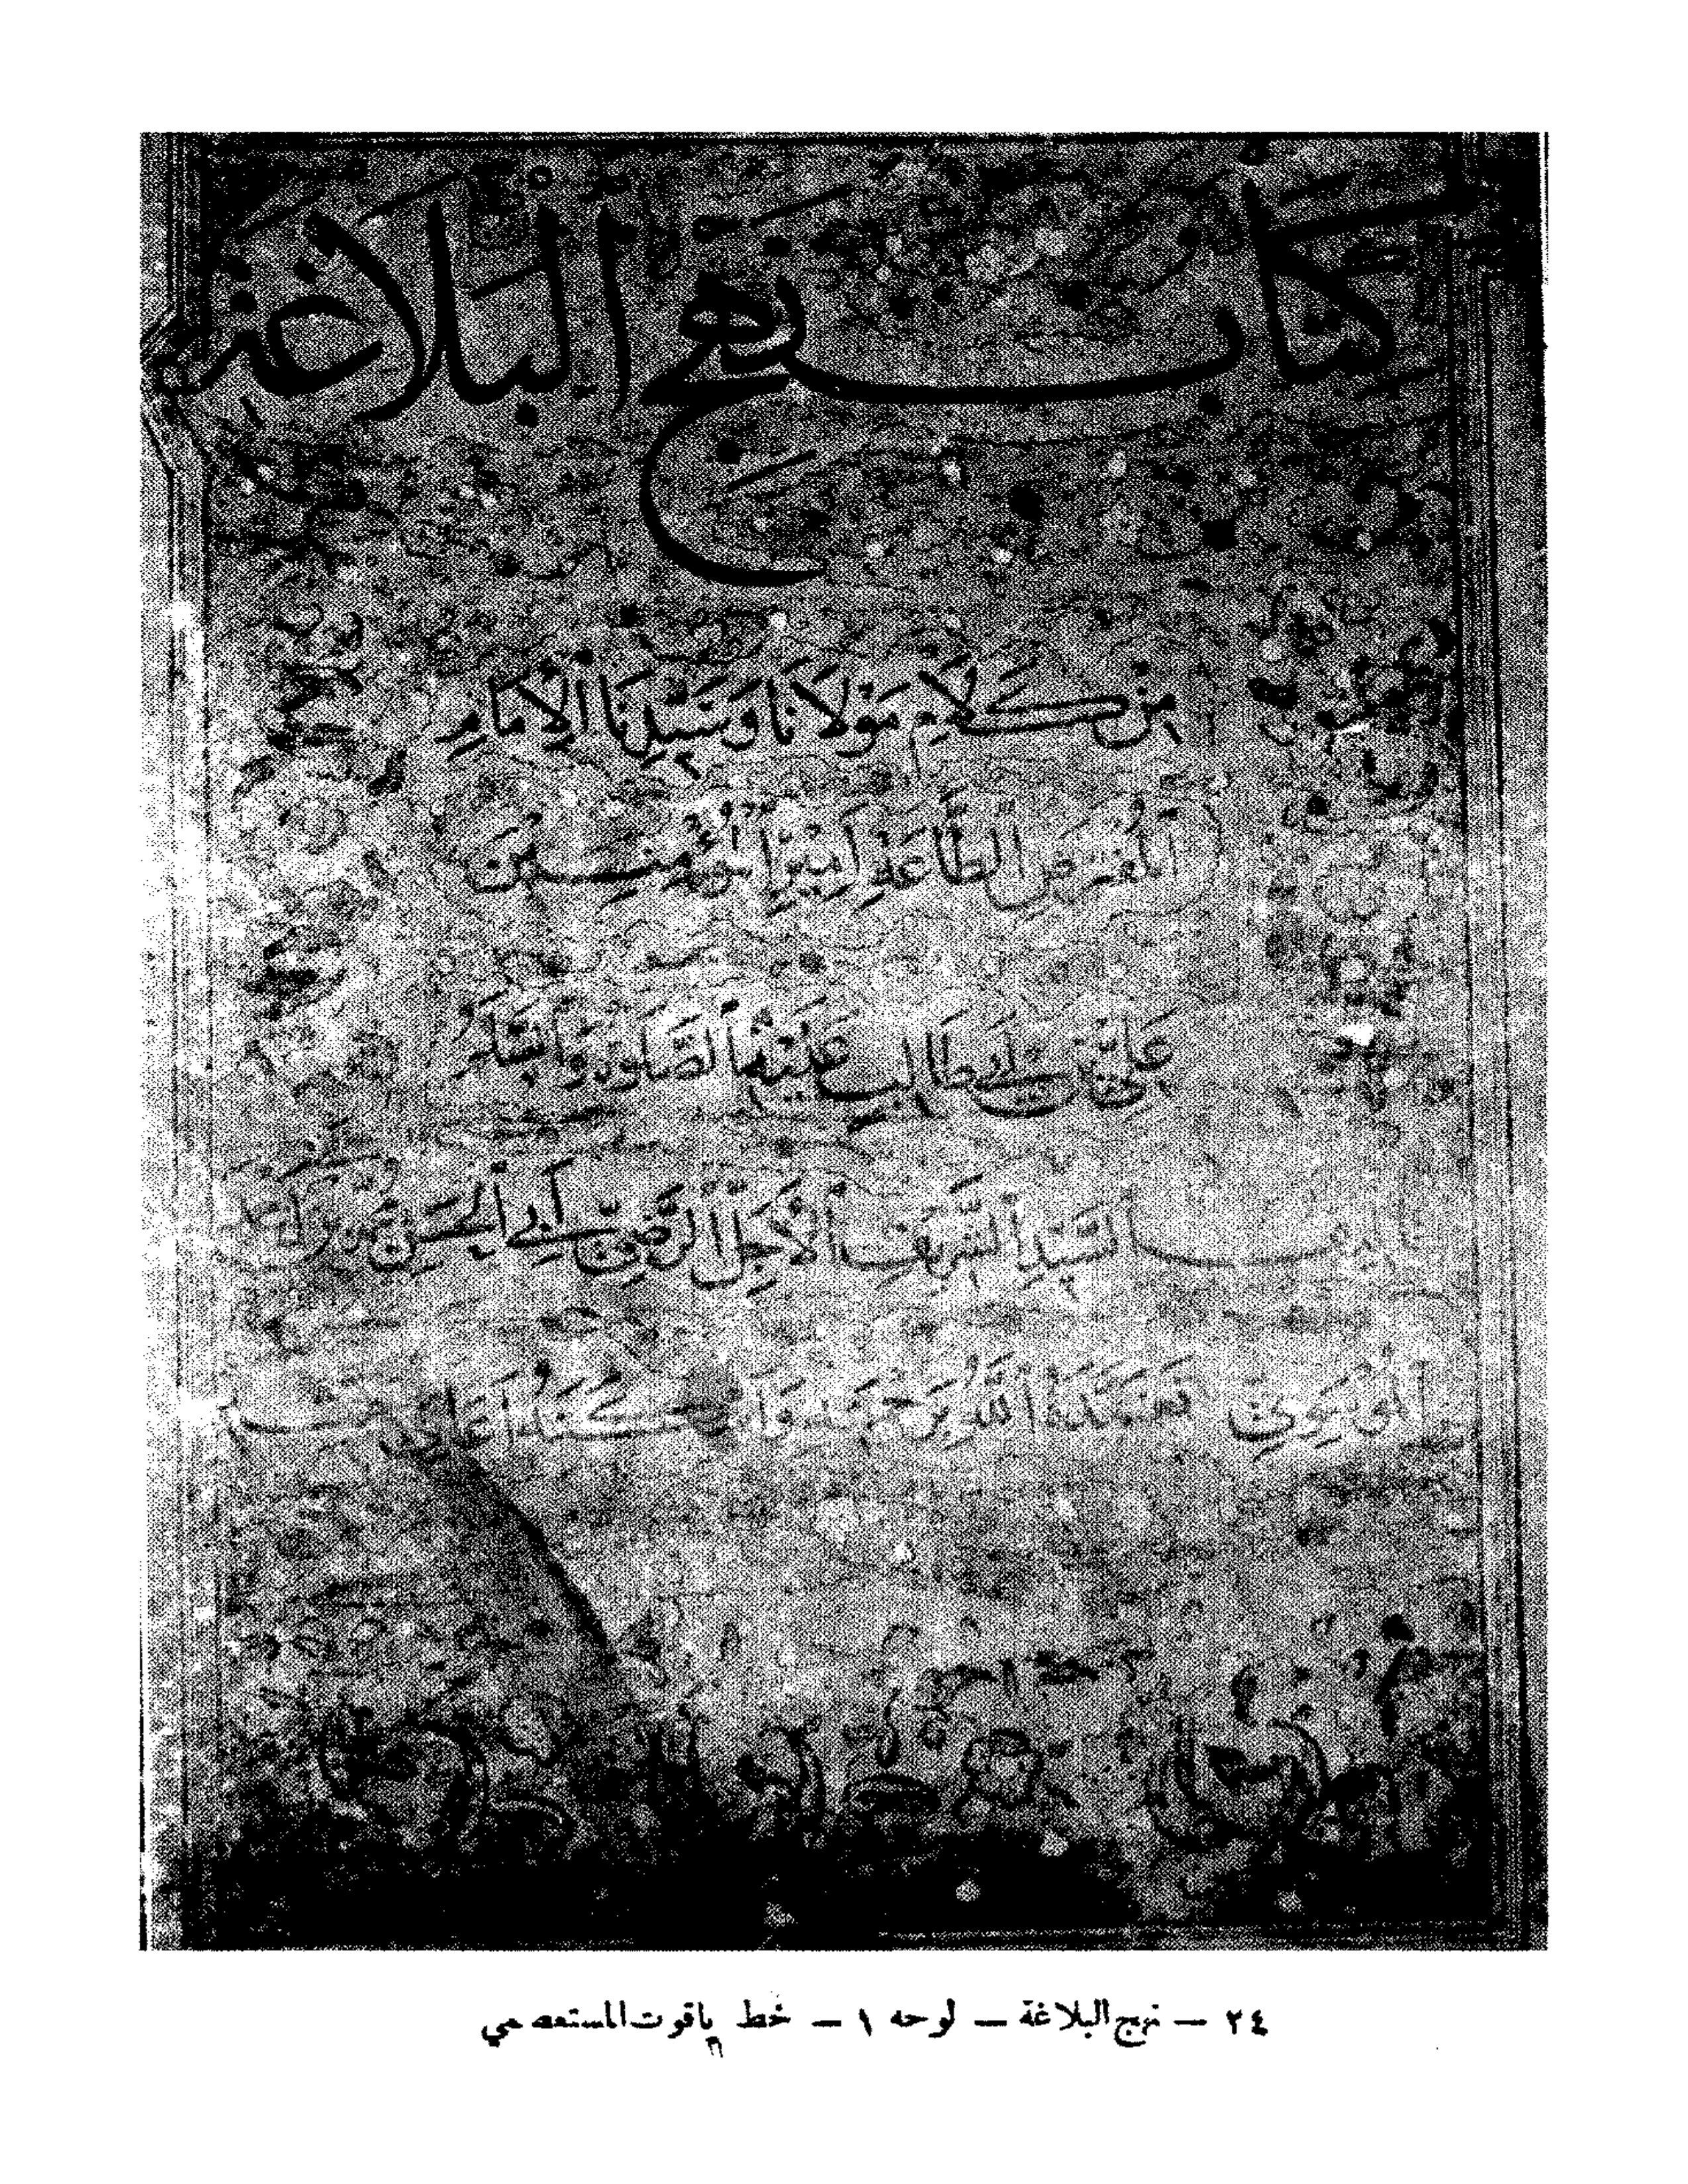 كتاب نهج البلاغة
مِنْ كَلَامِ مَوْلَانَا وَسَيِّدِنَا الْإِمَامِ
الْمُفْتَرَضِ الطَّاعَةِ أَمِيرِ الْمُؤْمِنِينَ
عَلِيِّ بْنِ أَبِي طَالِبٍ عَلَيْهِمَا الصَّلٰوةُ وَالسَّلَامُ
تأليف السَّيِّدِ الشَّرِيفِ الْأَجَلِّ الرَّضِيِّ أَبِي الْحَسَنِ
الْمُوسَوِيِّ تَغَمَّدَهُ اللهُ بِرَحْمَتِهِ وَأَسْكَنَهُ أَعَالِي
٢٤ – نهج البلاغة – لوحه ١ – خط ياقوت المستعصمي